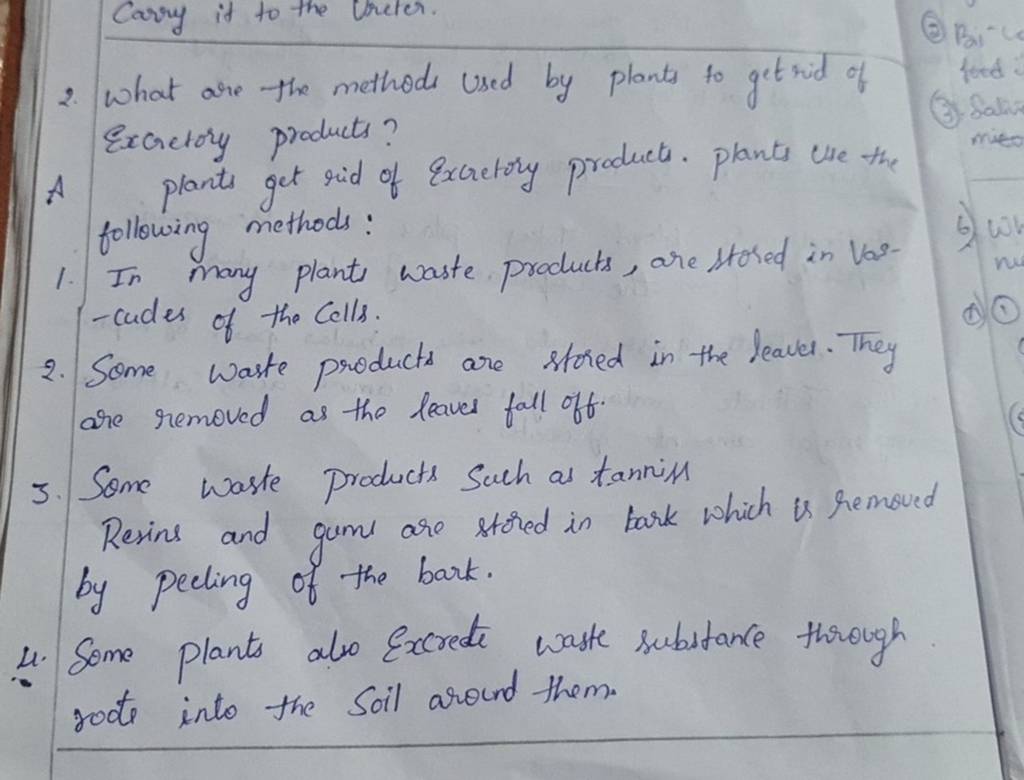 Carry it to the Ureter.
2. What are the methods Used by plants to get rid of
Excretory products?
A plants get rid of Excretory products. plants Use the
following methods:
1. In many plants waste products, are stored in Vas-
-cudes of the Cells.
2. Some waste products are stored in the leaves. They
are removed as the leaves fall off.
3. Some waste products Such as tanniss
Resins and gums are stored in bark which is removed
by peeling of the bark.
4. Some plants also Excrete waste substance through
roots into the Soil around them.
②
food
③ Saliv
6) Wh
①